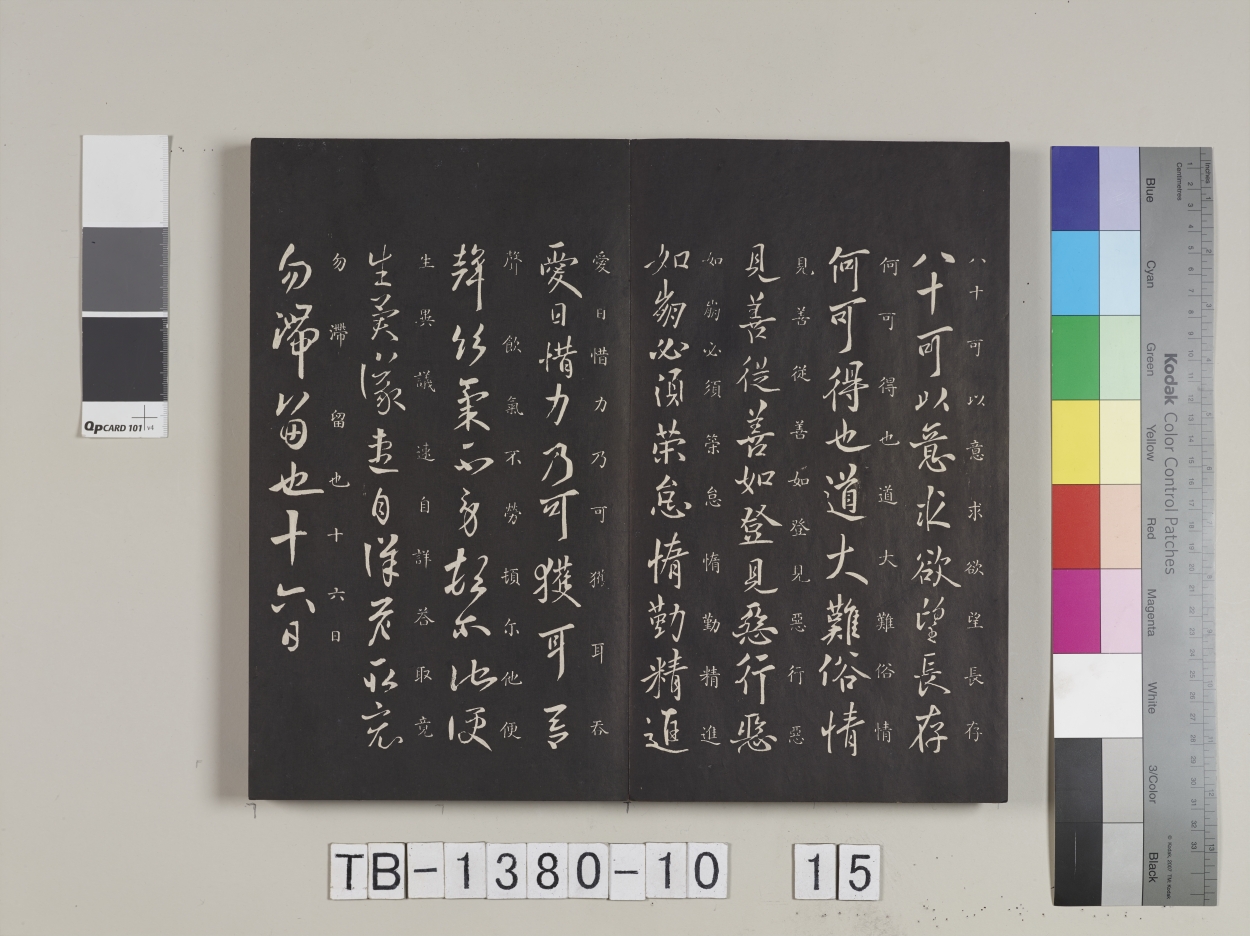 八十可以意求欲望長存
八十可以意求欲望長存
何可得也道大難俗情
何可得也道大難俗情
見善從善如登見惡行惡
見善從善如登見惡行惡
如崩必須榮怠惰勤精進
如崩必須榮怠惰勤精進
愛日惜力乃可獲耳吞
愛日惜力乃可獲耳吞
聲飲氣不勞頓尔他便
聲飲氣不勞頓尔他便
生異議速自詳答取竟
生異議速自詳答取竟
勿滯留也十六日
勿滯留也十六日
QPCARD 101 v4
Kodak Color Control Patches
Blue
Cyan
Green
Yellow
Red
Magenta
White
3/Color
Black
Inches
Centimetres
TB-1380-10 15